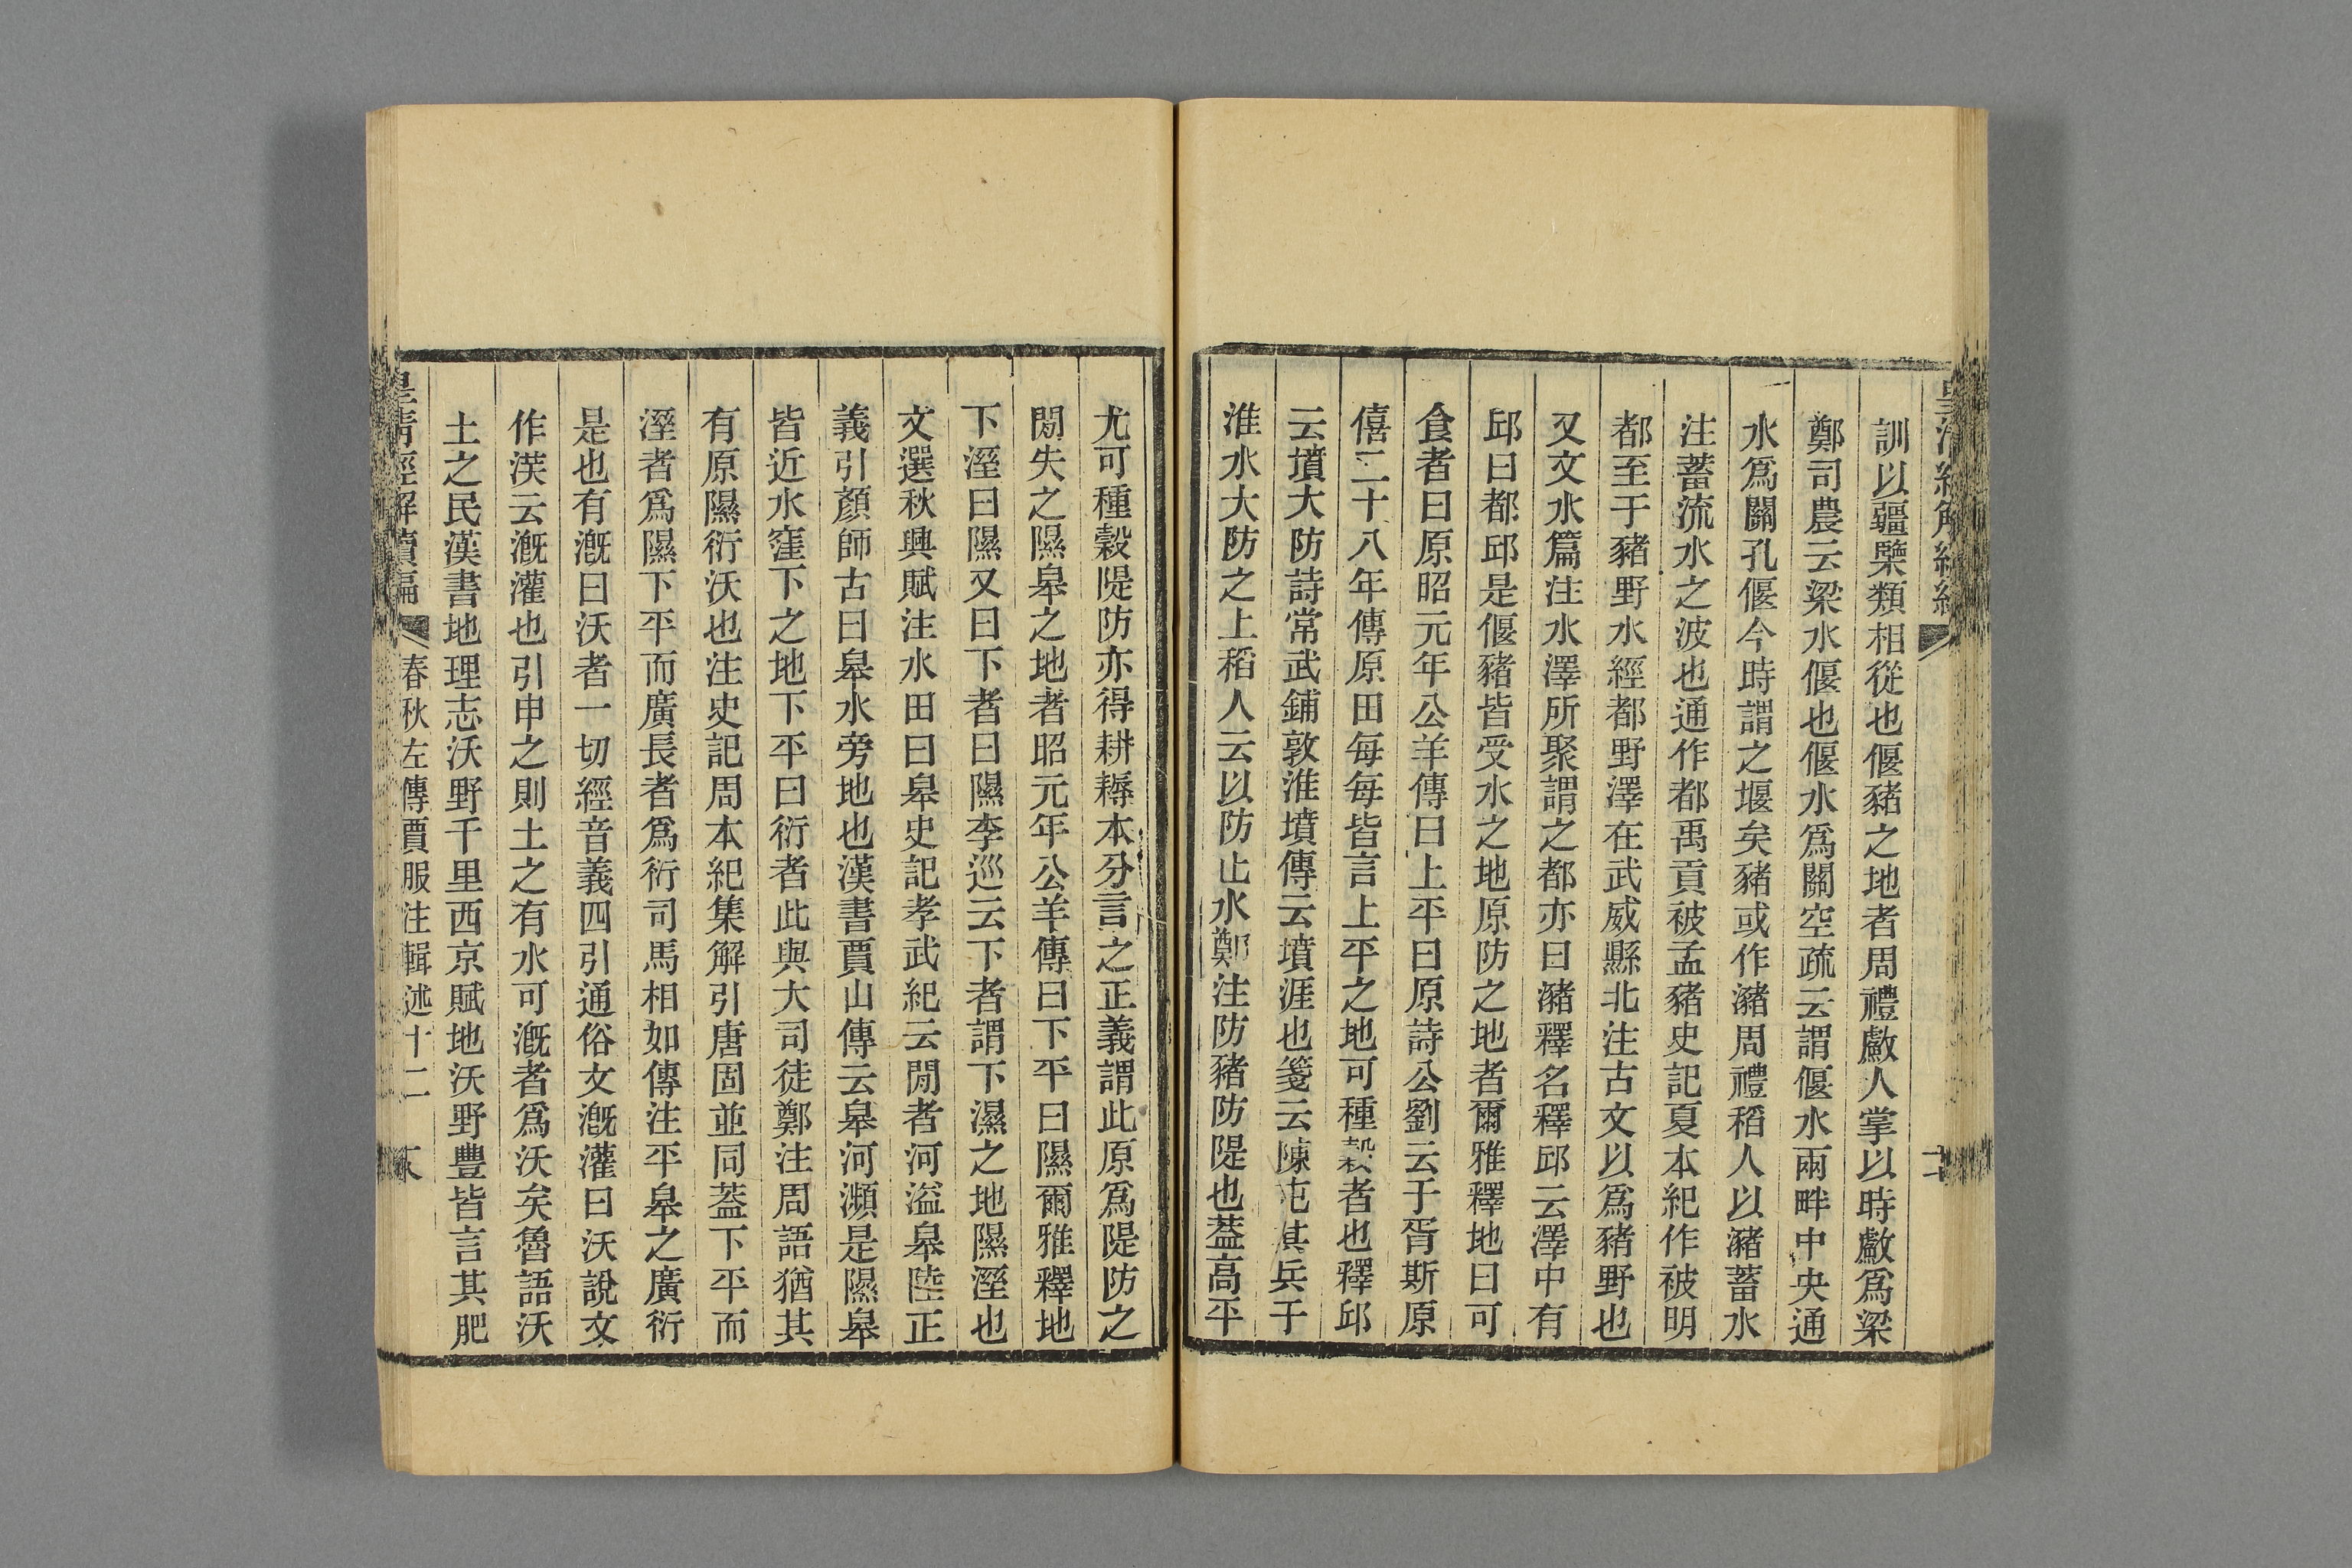 訓以疆㯺類相從也偃豬之地者周禮䱷人掌以時䱷爲梁
鄭司農云梁水偃也偃水爲關空疏云謂偃水兩畔中央通
水爲關孔偃今時謂之堰矣豬或作瀦周禮稻人以瀦蓄水
注蓄流水之波也通作都禹貢被孟豬史記夏本紀作被明
都至于豬野水經都野澤在武威縣北注古文以爲豬野也
又文水篇注水澤所聚謂之都亦曰瀦釋名釋邱云澤中有
邱曰都邱是偃豬皆受水之地原防之地者爾雅釋地曰可
食者曰原昭元年公羊傳曰上平曰原詩公劉云于胥斯原
僖二十八年傳原田每每皆言上平之地可種穀者也釋邱
云墳大防詩常武鋪敦淮墳傳云墳涯也箋云陳屯其兵于
淮水大防之上稻人云以防止水鄭注防豬防隄也葢高平
尤可種穀隄防亦得耕耨本分言之正義謂此原爲隄防之
閒失之隰皋之地者昭元年公羊傳曰下平曰隰爾雅釋地
下溼曰隰又曰下者曰隰李巡云下者謂下濕之地隰溼也
文選秋興賦注水田曰皋史記孝武紀云閒者河溢皋陸正
義引顏師古曰皋水旁地也漢書賈山傳云皋河瀕是隰皋
皆近水窪下之地下平曰衍者此與大司徒鄭注周語猶其
有原隰衍沃也注史記周本紀集解引唐固並同葢下平而
溼者爲隰下平而廣長者爲衍司馬相如傳注平皋之廣衍
是也有漑曰沃者一切經音義四引通俗文漑灌曰沃說文
作渶云漑灌也引申之則土之有水可漑者爲沃矣魯語沃
土之民漢書地理志沃野千里西京賦地沃野豐皆言其肥
皇清經解續編 春秋左傳賈服注輯述十二